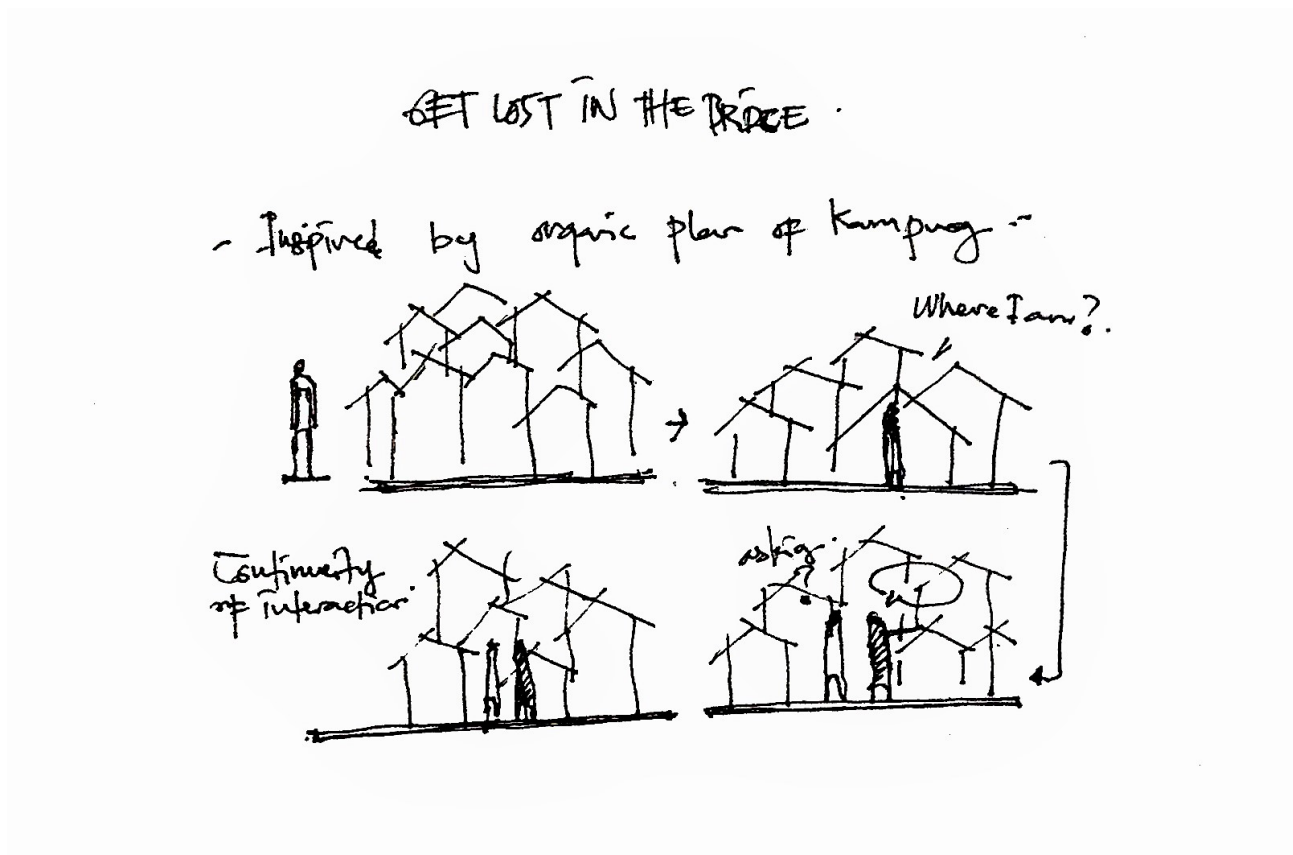 GET LOST IN THE BRIDGE.
- Inspired by organic plan of Kampung -
Where I am?
asking.
?
Continuity
of interaction